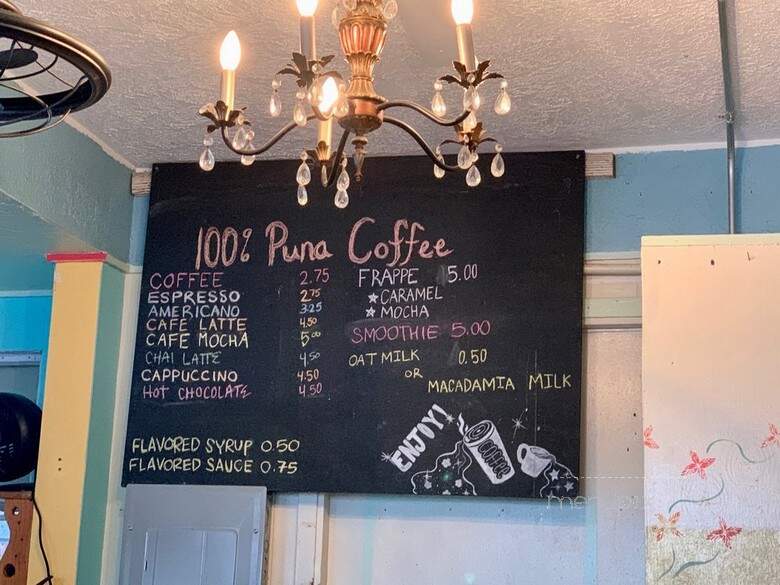 100% Puna Coffee
COFFEE 2.75
ESPRESSO 2.75
AMERICANO 3.25
CAFE LATTE 4.50
CAFE MOCHA 5.00
CHAI LATTE 4.50
CAPPUCCINO 4.50
HOT CHOCOLATE 4.50
FLAVORED SYRUP 0.50
FLAVORED SAUCE 0.75
FRAPPE 5.00
★CARAMEL
★MOCHA
SMOOTHIE 5.00
OAT MILK 0.50
OR
MACADAMIA MILK
ENJOY!
COFFEE